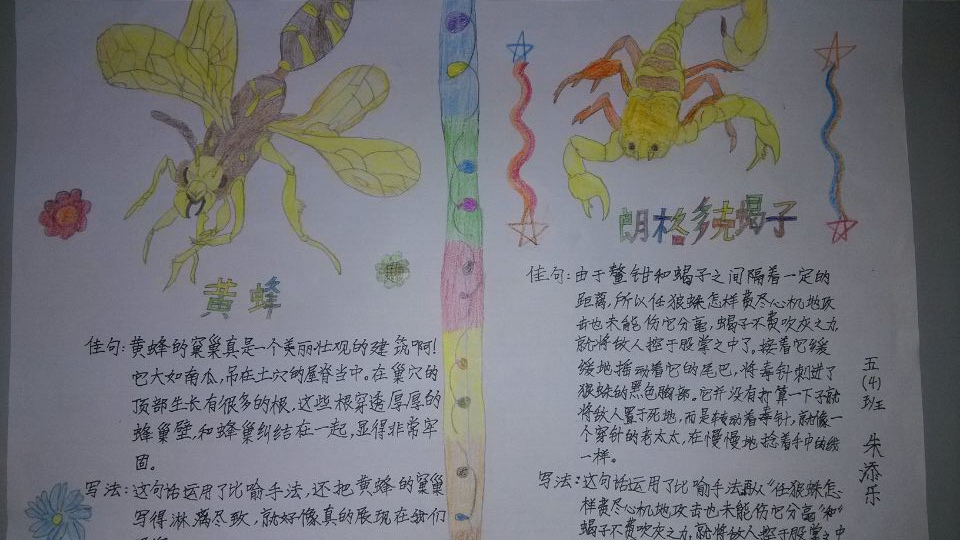 黄蜂
佳句：黄蜂的窠巢真是一个美丽壮观的建筑啊！
它大如南瓜，吊在土穴的屋脊当中。在巢穴的
顶部生长有很多的根，这些根穿透厚厚的
蜂巢壁，和蜂巢纠结在一起，显得非常牢
固。
写法：这句话运用了比喻手法，还把黄蜂的窠巢
写得淋漓尽致，就好像真的展现在我们
朗格多克蝎子
佳句：由于螯钳和蝎子之间隔着一定的
距离，所以任狼蛛怎样费尽心机地攻
击也未能伤它分毫，蝎子不费吹灰之力，
就将敌人控于股掌之中了。接着它缓
缓地摇动着它的尾巴，将毒针刺进了
狼蛛的黑色胸部。它并没有打算一下子就
将敌人置于死地，而是转动着毒针，就像一
个穿针的老太太，在慢慢地捻着手中的线
一样。
写法：这句话运用了比喻手法再从“任狼蛛怎
样费尽心机地攻击也未能伤它分毫”和“
蝎子不费吹灰之力，就将敌人控于股掌之中
五(4)班 朱添乐